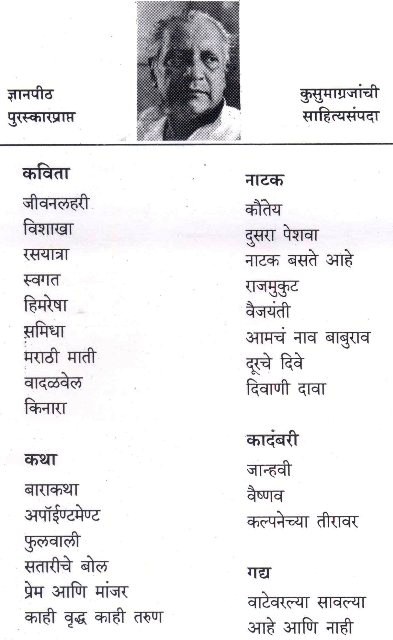 ज्ञानपीठ
पुरस्कारप्राप्त
कुसुमाग्रजांची
साहित्यसंपदा
कविता
जीवनलहरी
विशाखा
रसयात्रा
स्वगत
हिमरेषा
समिधा
मराठी माती
वादळवेल
किनारा
कथा
बाराकथा
अपॉईण्टमेण्ट
फुलवाली
सतारीचे बोल
प्रेम आणि मांजर
काही वृद्ध काही तरुण
नाटक
कौंतेय
दुसरा पेशवा
नाटक बसते आहे
राजमुकुट
वैजयंती
आमचं नाव बाबुराव
दूरचे दिवे
दिवाणी दावा
कादंबरी
जान्हवी
वैष्णव
कल्पनेच्या तीरावर
गद्य
वाटेवरल्या सावल्या
आहे आणि नाही